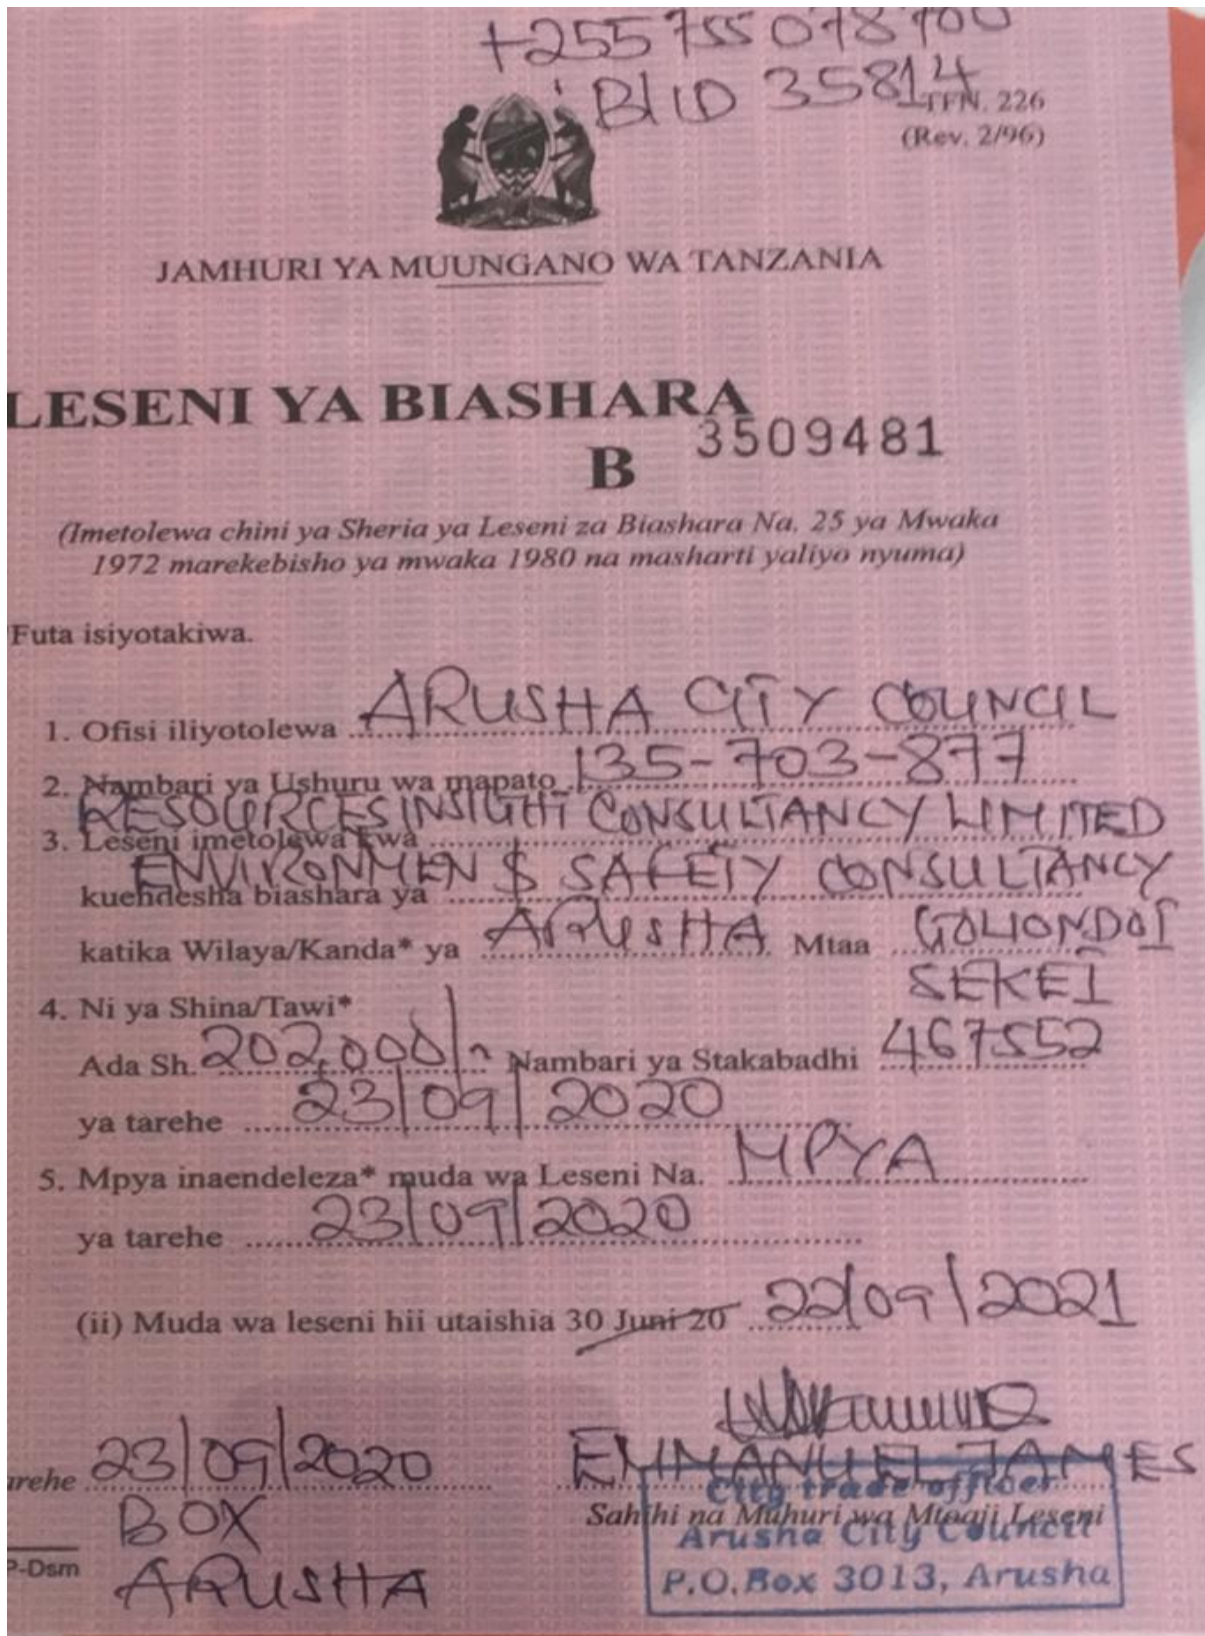 +255 755 078700
BIID 35814
TFN. 226
(Rev. 2/96)
JAMHURI YA MUUNGANO WA TANZANIA
LESENI YA BIASHARA
B 3509481
(Imetolewa chini ya Sheria ya Leseni za Biashara Na. 25 ya Mwaka
1972 marekebisho ya mwaka 1980 na masharti yaliyo nyuma)
Futa isiyotakiwa.
1. Ofisi iliyotolewa ARUSHA CITY COUNCIL
2. Nambari ya Ushuru wa mapato 135-703-877
RESOURCES INSIGHT CONSULTANCY LIMITED
3. Leseni imetolewa kwa
ENVIRONMEN & SAFETY CONSULTANCY
kuendesha biashara ya
katika Wilaya/Kanda* ya ARUSHA Mtaa GOLIONDOI
SEKEI
4. Ni ya Shina/Tawi*
Ada Sh. 202,000/= Nambari ya Stakabadhi 467552
ya tarehe 23/09/2020
5. Mpya inaendeleza* muda wa Leseni Na. MPYA
ya tarehe 23/09/2020
(ii) Muda wa leseni hii utaishia 30 Juni 20 22/09/2021
arehe 23/09/2020 EMMANUEL JAMES
City trade officer
Sahihi na Muhuri wa Mtoaji Leseni
BOX
Arusha City Council
P-Dsm
ARUSHA
P.O.Box 3013, Arusha